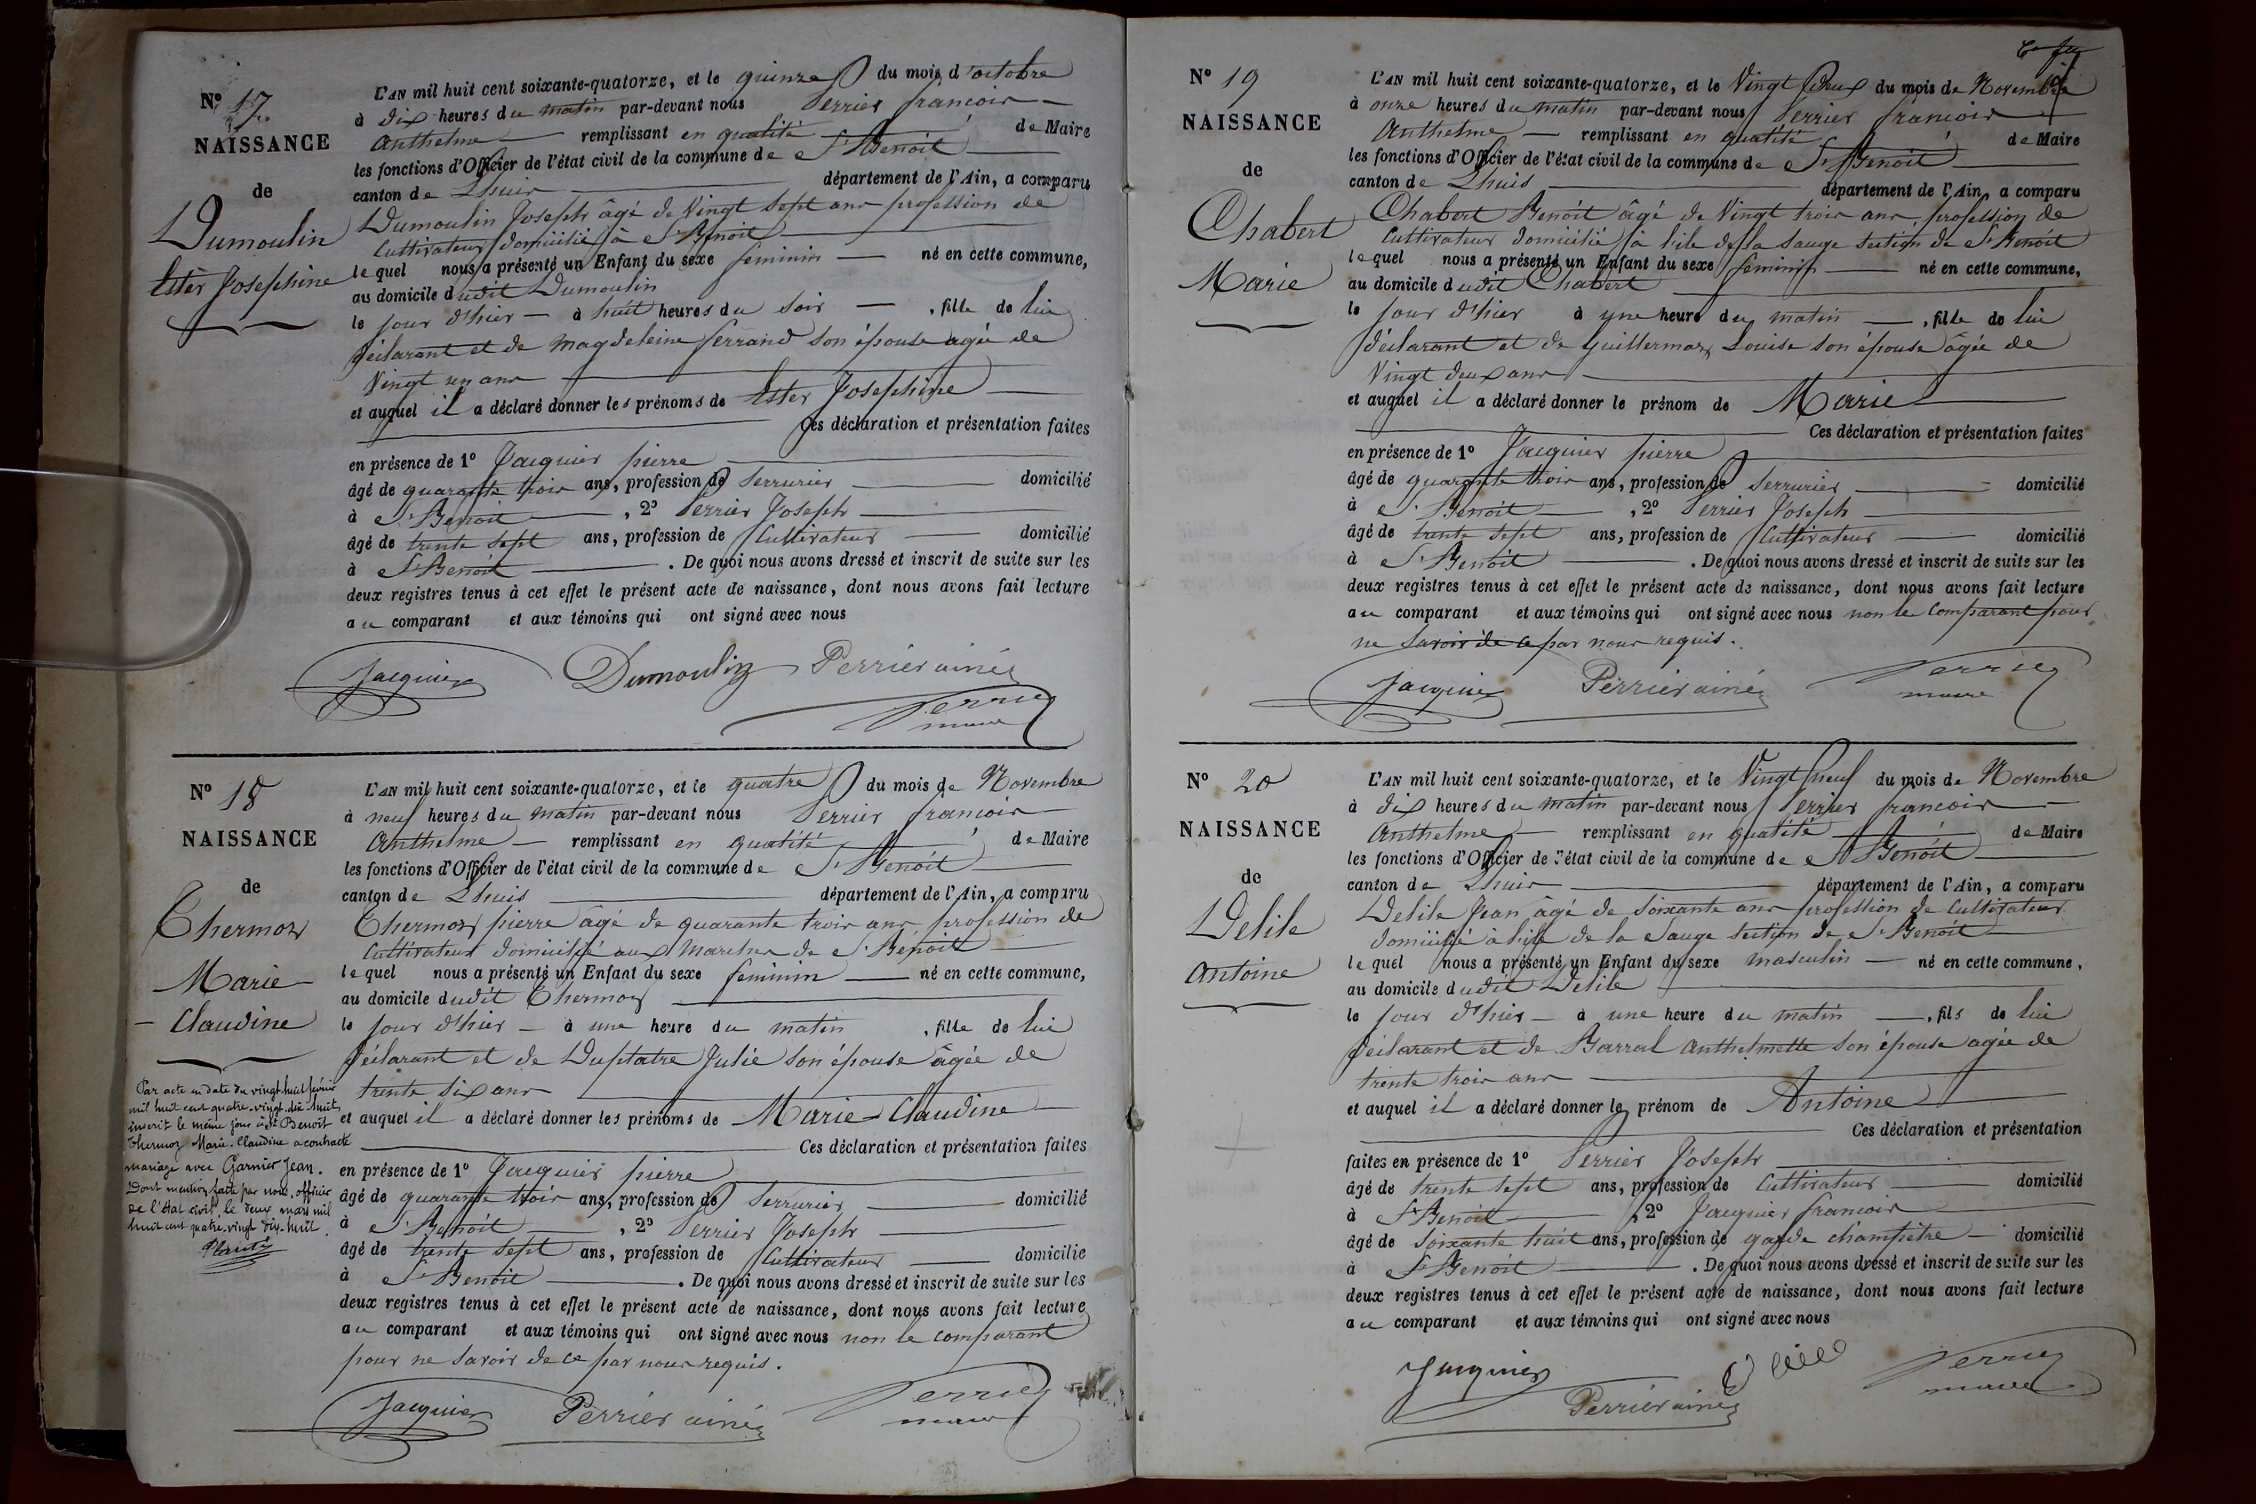 N° 17.
NAISSANCE
de
Dumoulin
Ester Josephine
L'AN mil huit cent soixante-quatorze, et le quinze du mois d'octobre
à dix heures du matin par-devant nous Perrier françois
Anthelme remplissant en qualité de Maire
les fonctions d'Officier de l'état civil de la commune de St Benoit
canton de Lhuis département de l'Ain, a comparu
Dumoulin Joseph âgé de Vingt sept ans profession de
Cultivateur domicilié à St Benoit
lequel nous a présenté un Enfant du sexe feminin né en cette commune,
au domicile dudit Dumoulin
le jour d'hier à huit heures du soir , fille de lui
déclarant et de Magdeleine ferrand son épouse agée de
Vingt un ans
et auquel il a déclaré donner les prénoms de Ester Josephine
Ces déclaration et présentation faites
en présence de 1° Jacquier pierre
âgé de quarante trois ans, profession de Serrurier domicilié
à St Benoit , 2° Perrier Joseph
âgé de trente sept ans, profession de Cultivateur domicilié
à St Benoit . De quoi nous avons dressé et inscrit de suite sur les
deux registres tenus à cet effet le présent acte de naissance, dont nous avons fait lecture
au comparant et aux témoins qui ont signé avec nous
Jacquier Dumoulin Perrier ainé
Perrier
maire
N° 18
NAISSANCE
de
Thermoz
Marie
Claudine
Par acte en date du vingt-huit février
mil huit cent quatre-vingt-dix-huit,
inscrit le même jour à St Benoit
Thermoz Marie-Claudine a contracté
mariage avec Garnier Jean.
Dont mention faite par nous, officier
de l'état civil, le deux mars mil
huit cent quatre-vingt dix-huit.
L'AN mil huit cent soixante-quatorze, et le quatre du mois de Novembre
à neuf heures du matin par-devant nous Perrier françois
Anthelme remplissant en qualité de Maire
les fonctions d'Officier de l'état civil de la commune de St Benoit
canton de Lhuis département de l'Ain, a comparu
Thermoz pierre âgé de quarante trois ans profession de
Cultivateur domicilié aux Marches de St Benoit
lequel nous a présenté un Enfant du sexe feminin né en cette commune,
au domicile dudit Thermoz
le jour d'hier à une heure du matin , fille de lui
déclarant et de Duplatre Julie son épouse âgée de
trente six ans
et auquel il a déclaré donner les prénoms de Marie-Claudine
Ces déclaration et présentation faites
en présence de 1° Jacquier pierre
âgé de quarante trois ans, profession de Serrurier domicilié
à St Benoit , 2° Perrier Joseph
âgé de trente sept ans, profession de Cultivateur domicilié
à St Benoit . De quoi nous avons dressé et inscrit de suite sur les
deux registres tenus à cet effet le présent acte de naissance, dont nous avons fait lecture
au comparant et aux témoins qui ont signé avec nous non le comparant
pour ne savoir de ce par nous requis.
Jacquier Perrier ainé Perrier
maire
N° 19
NAISSANCE
de
Chabert
Marie
L'AN mil huit cent soixante-quatorze, et le Vingt Deux du mois de Novembre
à onze heures du matin par-devant nous Perrier françois
Anthelme remplissant en qualité de Maire
les fonctions d'Officier de l'état civil de la commune de St Benoit
canton de Lhuis département de l'Ain, a comparu
Chabert Benoit âgé de Vingt trois ans profession de
Cultivateur domicilié à l'ile de la Sauge section de St Benoit
lequel nous a présenté un Enfant du sexe feminin né en cette commune,
au domicile dudit Chabert
le jour d'hier à une heure du matin , fille de lui
déclarant et de Guillermoz Louise son épouse âgée de
Vingt deux ans
et auquel il a déclaré donner le prénom de Marie
Ces déclaration et présentation faites
en présence de 1° Jacquier pierre
âgé de quarante trois ans, profession de Serrurier domicilié
à St Benoit , 2° Perrier Joseph
âgé de trente sept ans, profession de Cultivateur domicilié
à St Benoit . De quoi nous avons dressé et inscrit de suite sur les
deux registres tenus à cet effet le présent acte de naissance, dont nous avons fait lecture
au comparant et aux témoins qui ont signé avec nous non le comparant pour
ne savoir de ce par nous requis.
Jacquier Perrier ainé Perrier
maire
N° 20
NAISSANCE
de
Delile
Antoine
L'AN mil huit cent soixante-quatorze, et le Vingt neuf du mois de Novembre
à dix heures du matin par-devant nous Perrier françois
Anthelme remplissant en qualité de Maire
les fonctions d'Officier de l'état civil de la commune de St Benoit
canton de Lhuis département de l'Ain, a comparu
Delile Jean âgé de soixante ans profession de Cultivateur
domicilié à l'ile de la Sauge section de St Benoit
lequel nous a présenté un Enfant du sexe masculin né en cette commune,
au domicile dudit Delile
le jour d'hier à une heure du matin , fils de lui
déclarant et de Barral Anthelmette son épouse agée de
trente trois ans
et auquel il a déclaré donner le prénom de Antoine
Ces déclaration et présentation
faites en présence de 1° Perrier Joseph
âgé de trente sept ans, profession de Cultivateur domicilié
à St Benoit , 2° Jacquier françois
âgé de soixante huit ans, profession de garde champêtre domicilié
à St Benoit . De quoi nous avons dressé et inscrit de suite sur les
deux registres tenus à cet effet le présent acte de naissance, dont nous avons fait lecture
au comparant et aux témoins qui ont signé avec nous
Jacquier Delile Perrier
Perrier ainé maire